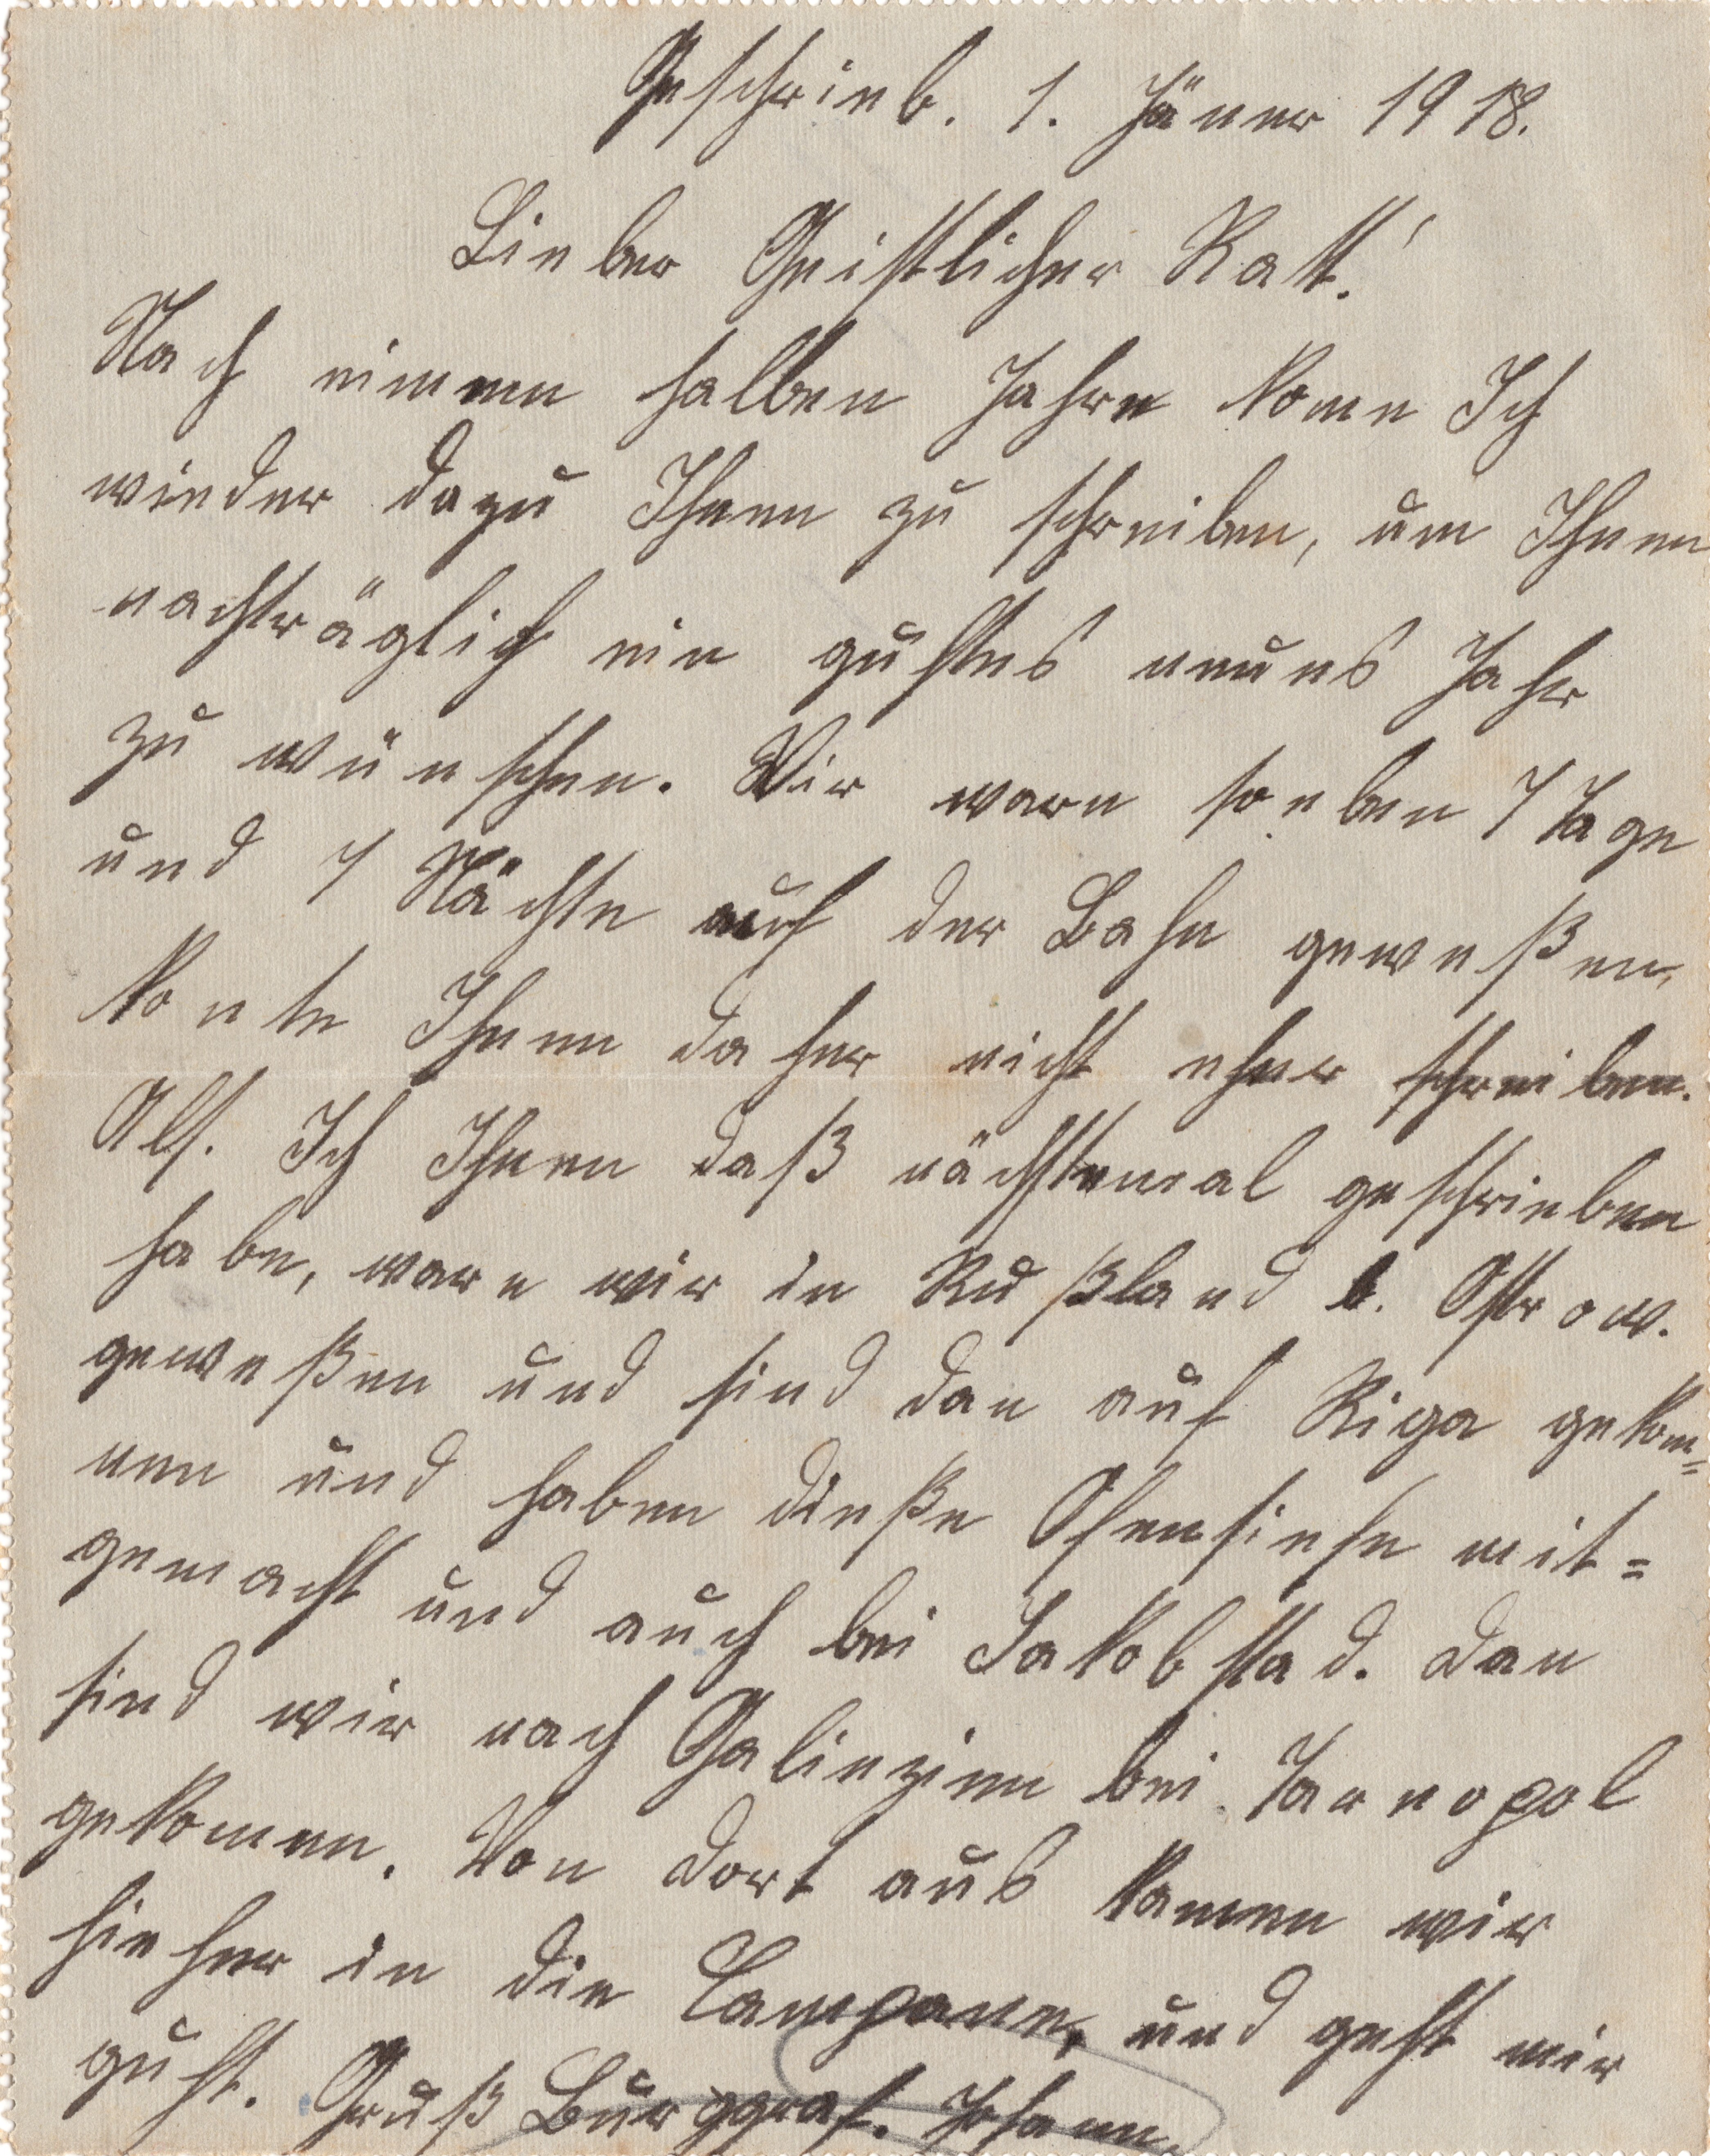 Geschrieb. 1. Jäner 1918.
Lieber Geistlicher Ratt!
Nach einmen halben Jahre kome Ich
wieder dazu Ihnen zu schreiben, um Ihnen
nachträglich ein guhtes neues Jahr
zu wünschen. Wir warn soeben 7 Tage
und 7 Nächte auf der Bahn geweßen,
konte Ihnen daher nicht eher schreiben.
Als. Ich Ihnen daß nächstemal geschrieben
habe, waren wir in Rußland b. Ostrow.
geweßen und sind dan auf Riga gekom=
men und haben dieße Ofensiefe mit=
gemacht und auch bei Jakobstad. dan
sind wir nach Galiezien bei Tarnopol
gekomen. Von dort aus kamen wir
hieher in die Campane, und geht mir
guht. Gruß Burggraf. Johann.